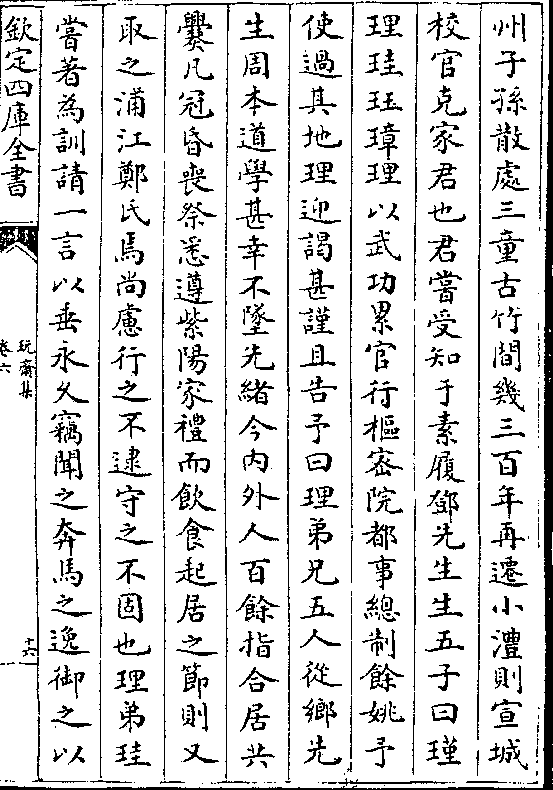 州子孫散處三童古竹間幾三百年再遷小澧則宣城
校官克家君也君嘗受知于素履鄧先生生五子曰瑾
理珪珏璋理以武功累官行樞宻院都事總制餘姚予
使過其地理迎謁甚謹且告予曰理弟兄五人從鄉先
生周本道學甚幸不墜先緒今内外人百餘指合居共
爨凡冠昏喪祭悉遵紫陽家禮而飲食起居之節則又
取之浦江鄭氏焉尚慮行之不逮守之不固也理弟珪
嘗著為訓請一言以垂永久竊聞之奔馬之逸御之以
欽定四庫全書
玩齋集
卷六
十六